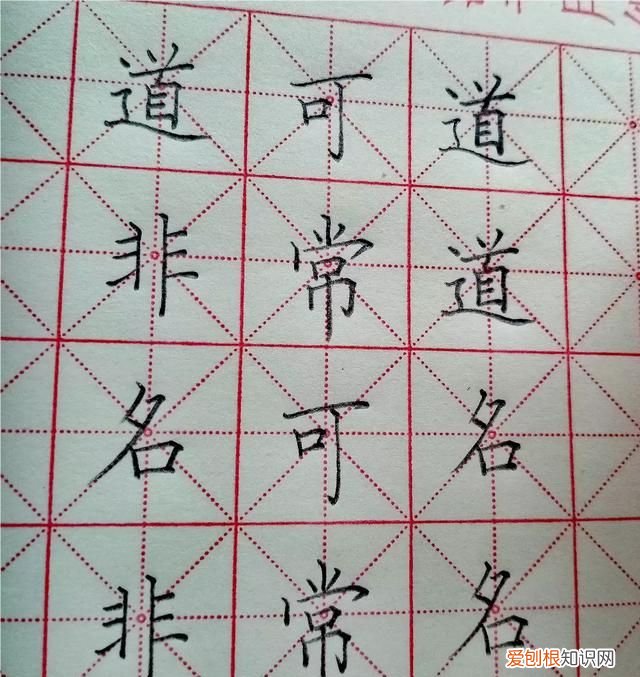 道可道
非常道
名可名
非常名
爱刨根知识网